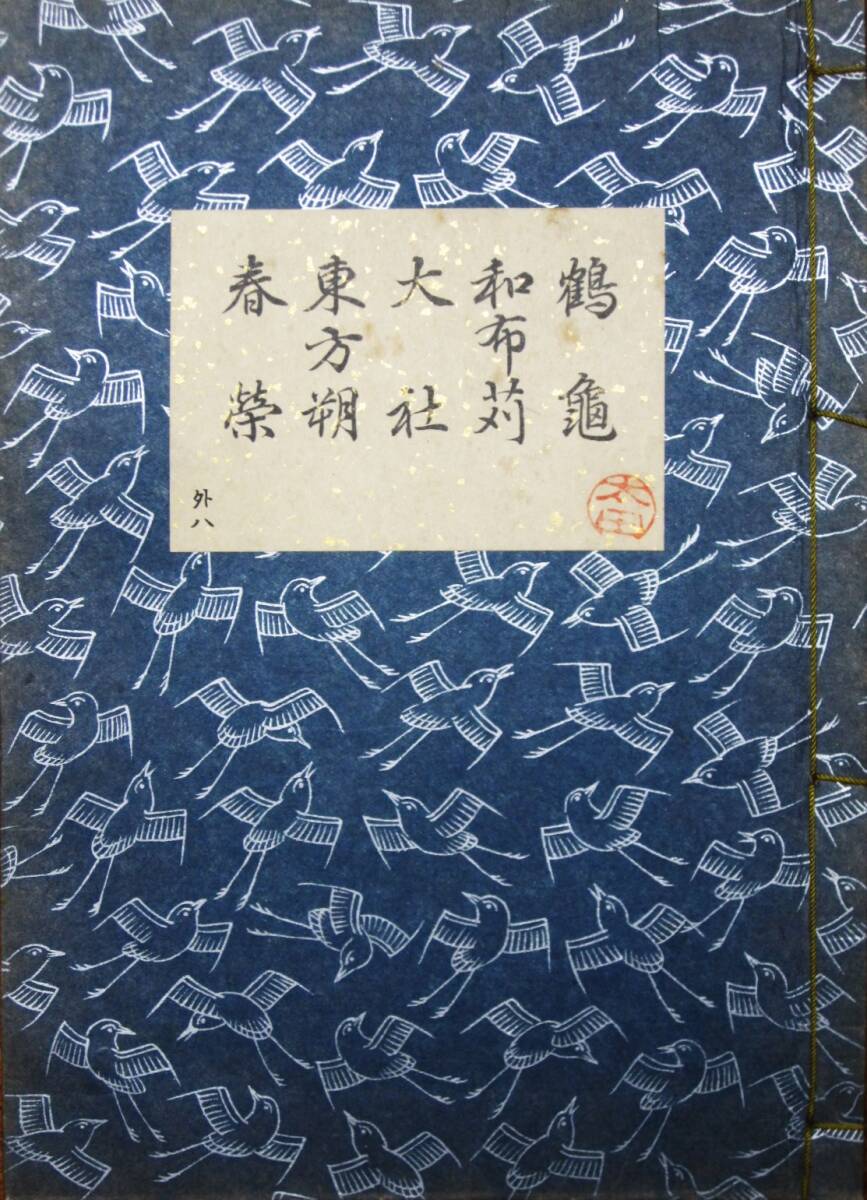 鶴龜
和布苅
大社
東方朔
春榮
外八
太田